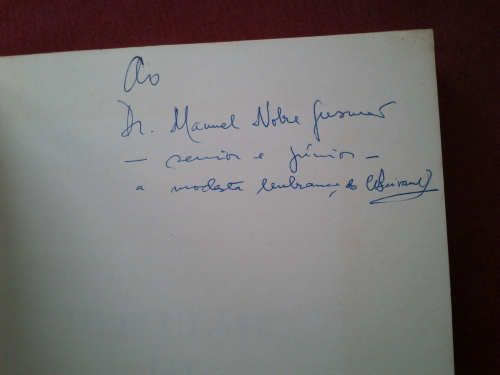 Ao
Dr. Manuel Nobre Gusmão
— senior e júnior —
a modesta lembrança do